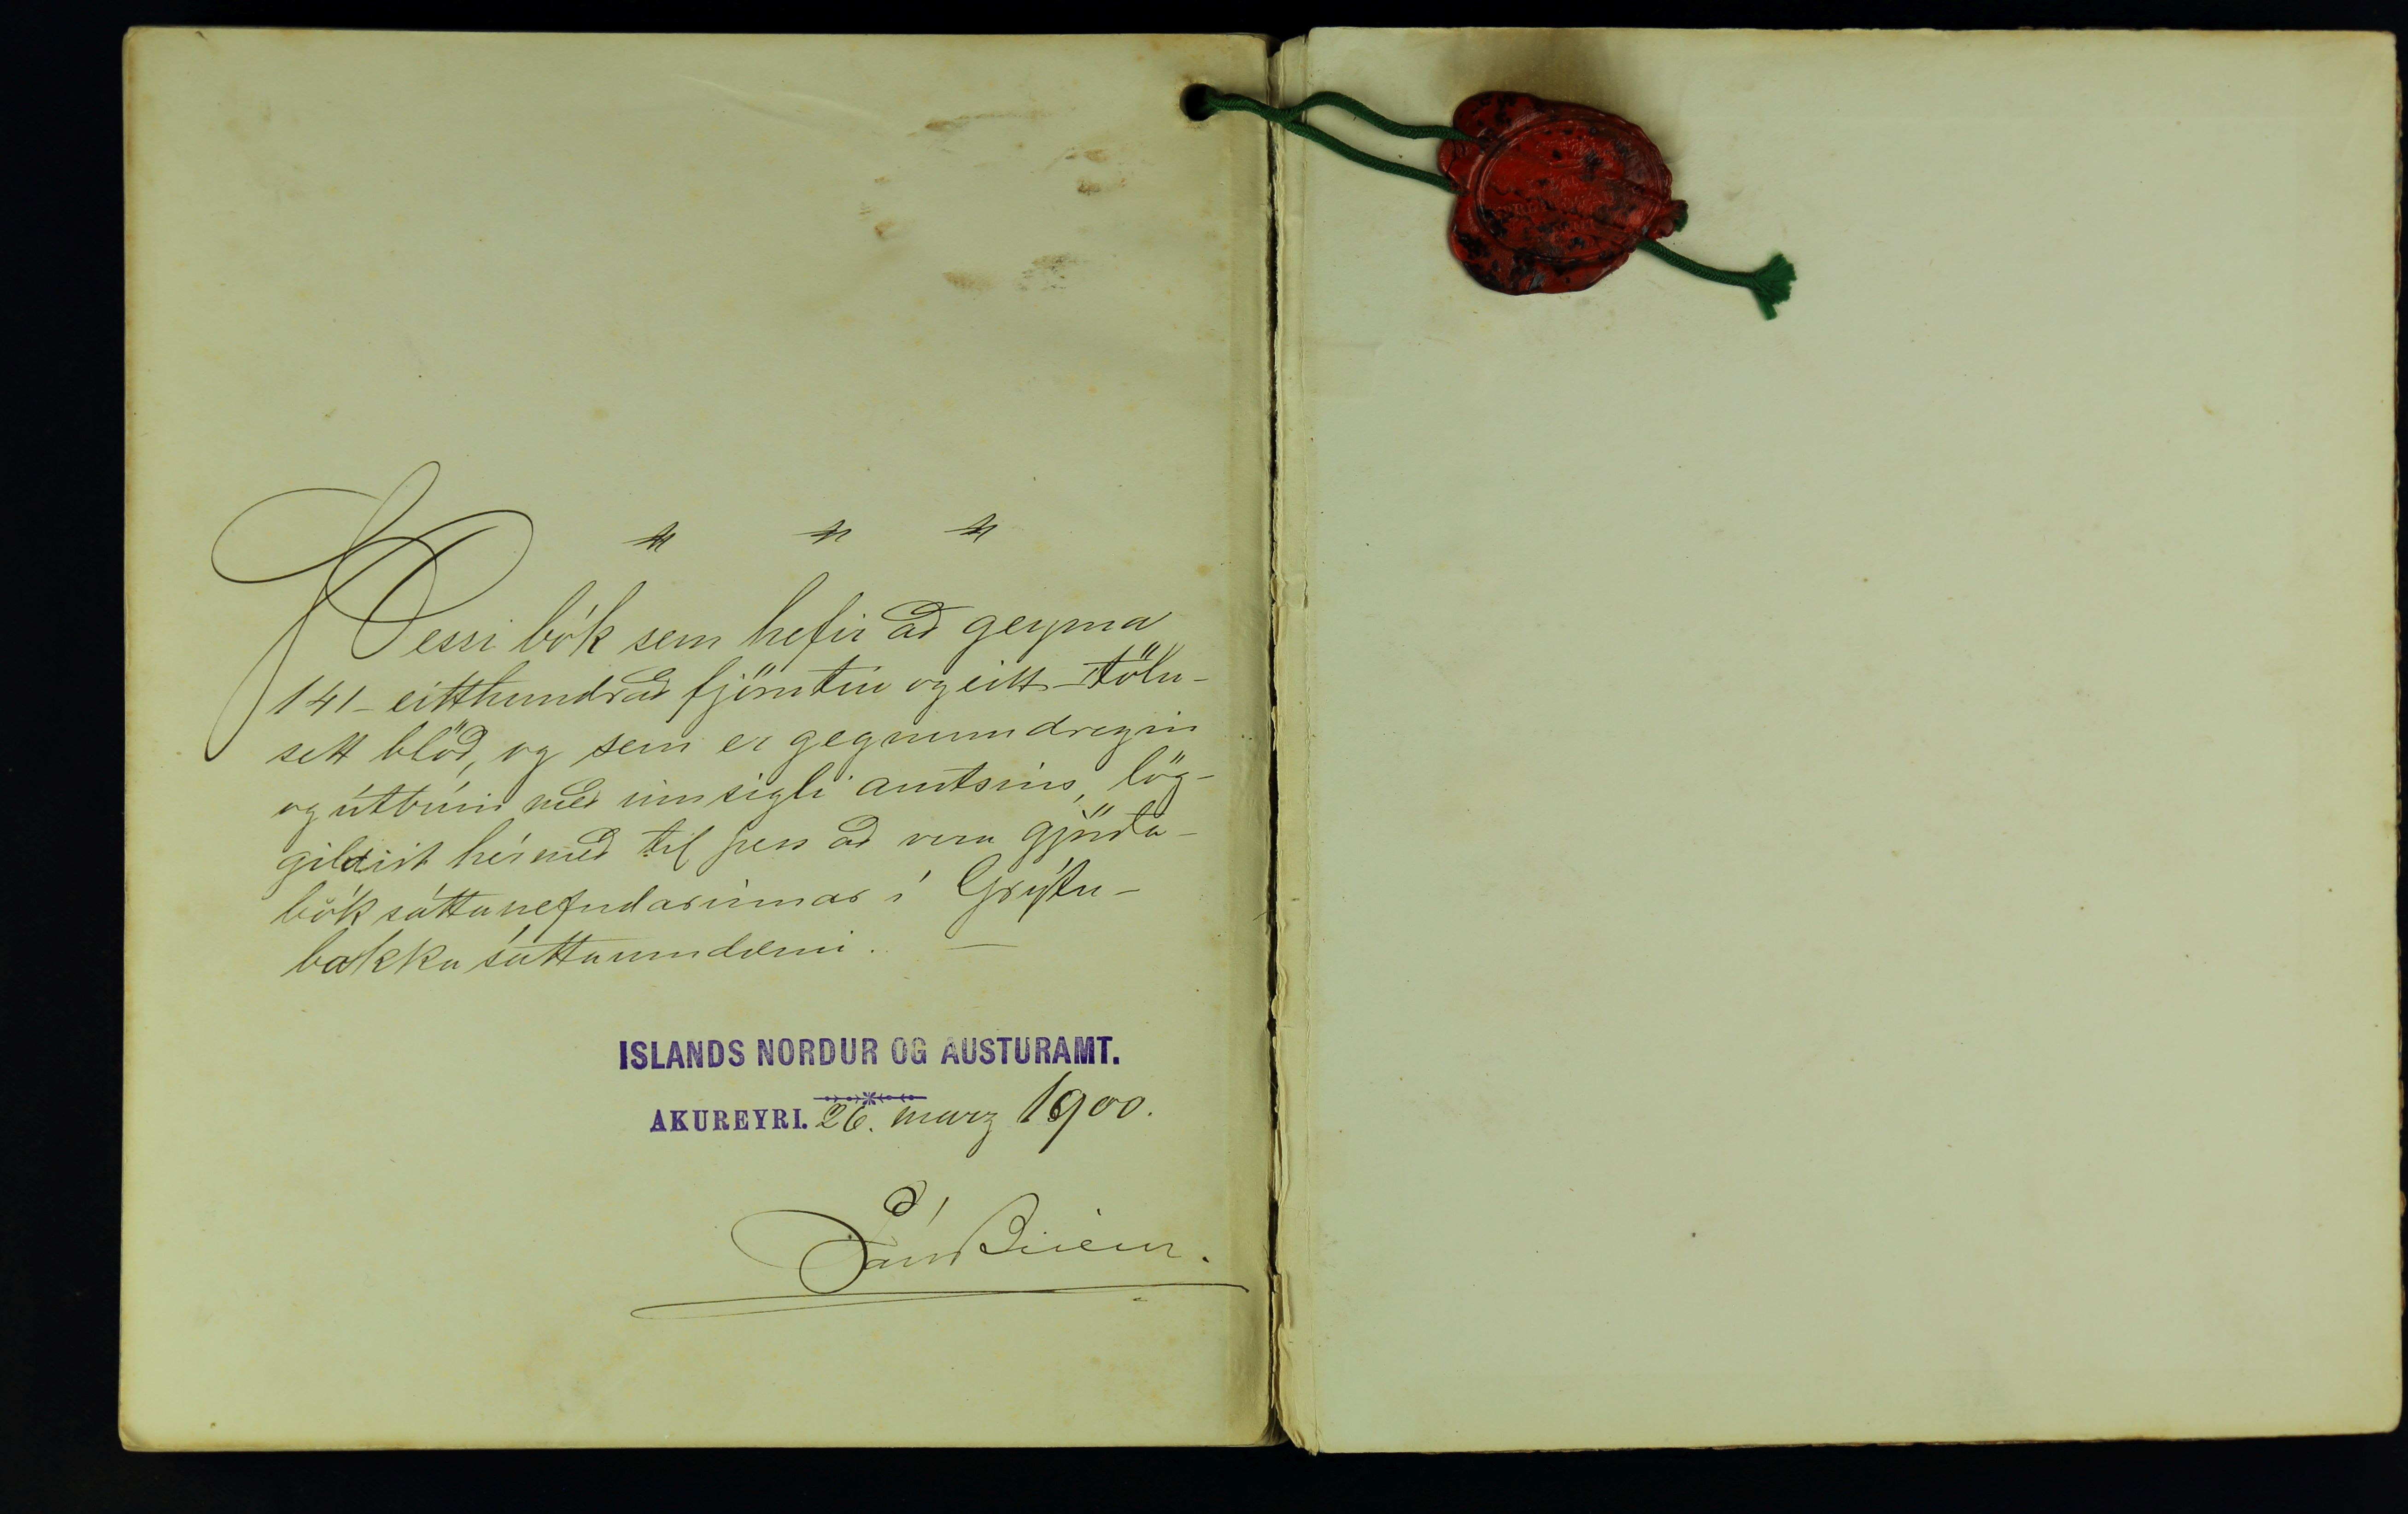 Þessi bók sem hefir að geyma
141 - eitthundrað fjörutíu og eitt - tölu-
sett blöð, og sem er gegnumdregin
og útbúin með innsigli amtsins, lög-
gildist hérmeð til þess að vera gjörða-
bók sáttanefndarinnar í Grýtu-
bakka sáttaumdæmi. —
ISLANDS NORDUR OG AUSTURAMT.
AKUREYRI. 26. marz 1900.
Páll Briem.